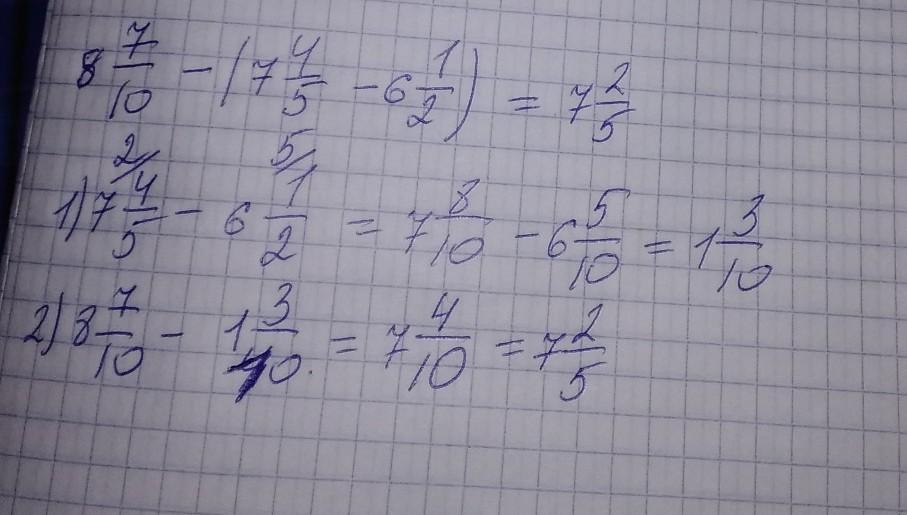 8 7/10 - (7 4/5 - 6 1/2) = 7 2/5
2/ 5/
1) 7 4/5 - 6 1/2 = 7 8/10 - 6 5/10 = 1 3/10
2) 8 7/10 - 1 3/10 = 7 4/10 = 7 2/5